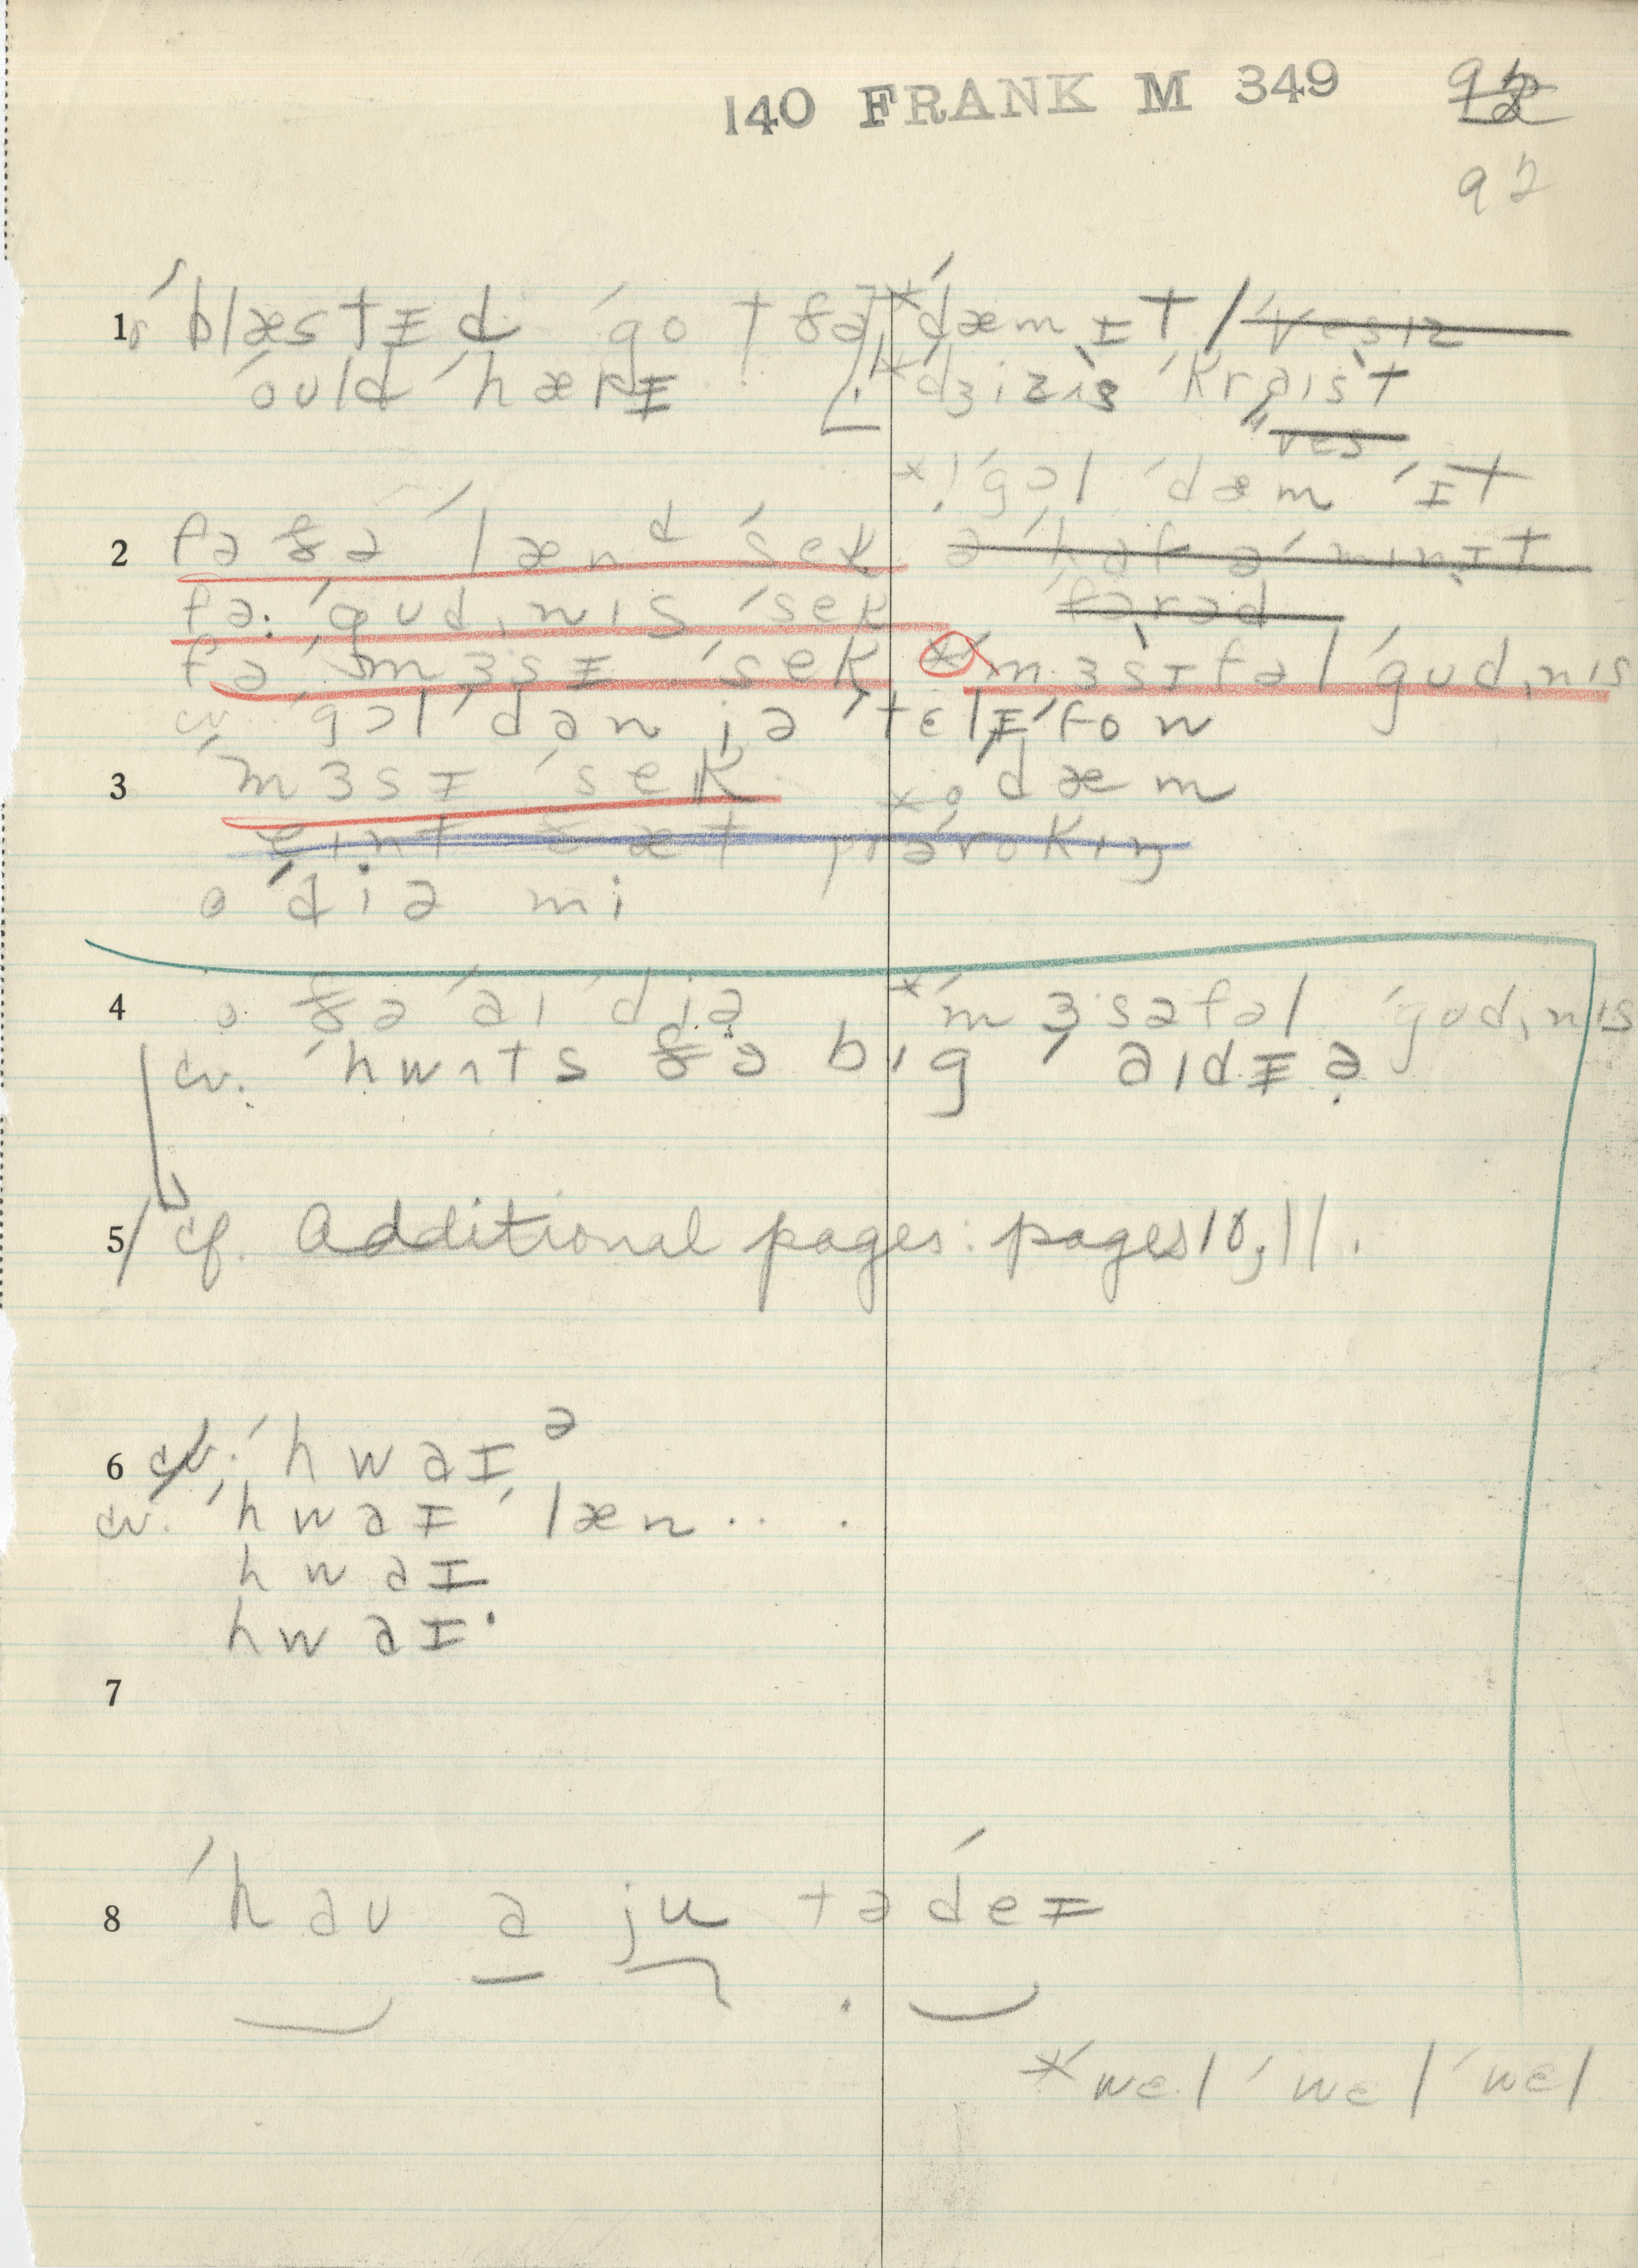 140 FRANK M 349
92
92
1 ˈblæstɪd ˈgo t ðə *ˈdæm ɪt / ˈvesɪz
ˈould ˈhærɪ *ˈdʒizɪs ˈkraist
ˈves
*! ˈgɔl ˈdæm ˈɪt
2 fə ðə ˈlænᵈ ˈsek ə ˈhaf ə ˈminɪt
fə: ˈgudˌnɪs ˈsek ˈfərəd
fə ˈmɜsɪ ˈsek *ˈmɜsɪfəl ˈgudˌnɪs
cv. ˈgɔl ˈdən jə ˈtɛlɪˈfon
3 ˈmɜsɪ ˈsek *o ˈdæm
eint ðæt prəˈrokɪŋ
o ˈdiə mi
4 o ðə ˈaɪˈdiə *ˈmɜsəfəl ˈgudˌnɪs
cv. ˈhwʌts ðə bɪg ˈaɪdɪə
5 / cf. Additional pages: pages 10, 11.
6 cv. ˈhwaɪᵊ
cv. ˈhwaɪ ˈlæn . . .
hwaɪ
hwaɪ·
7
8 ˈhau ə ju təˈdeɪ
*ˈwɛl ˈwɛl ˈwɛl